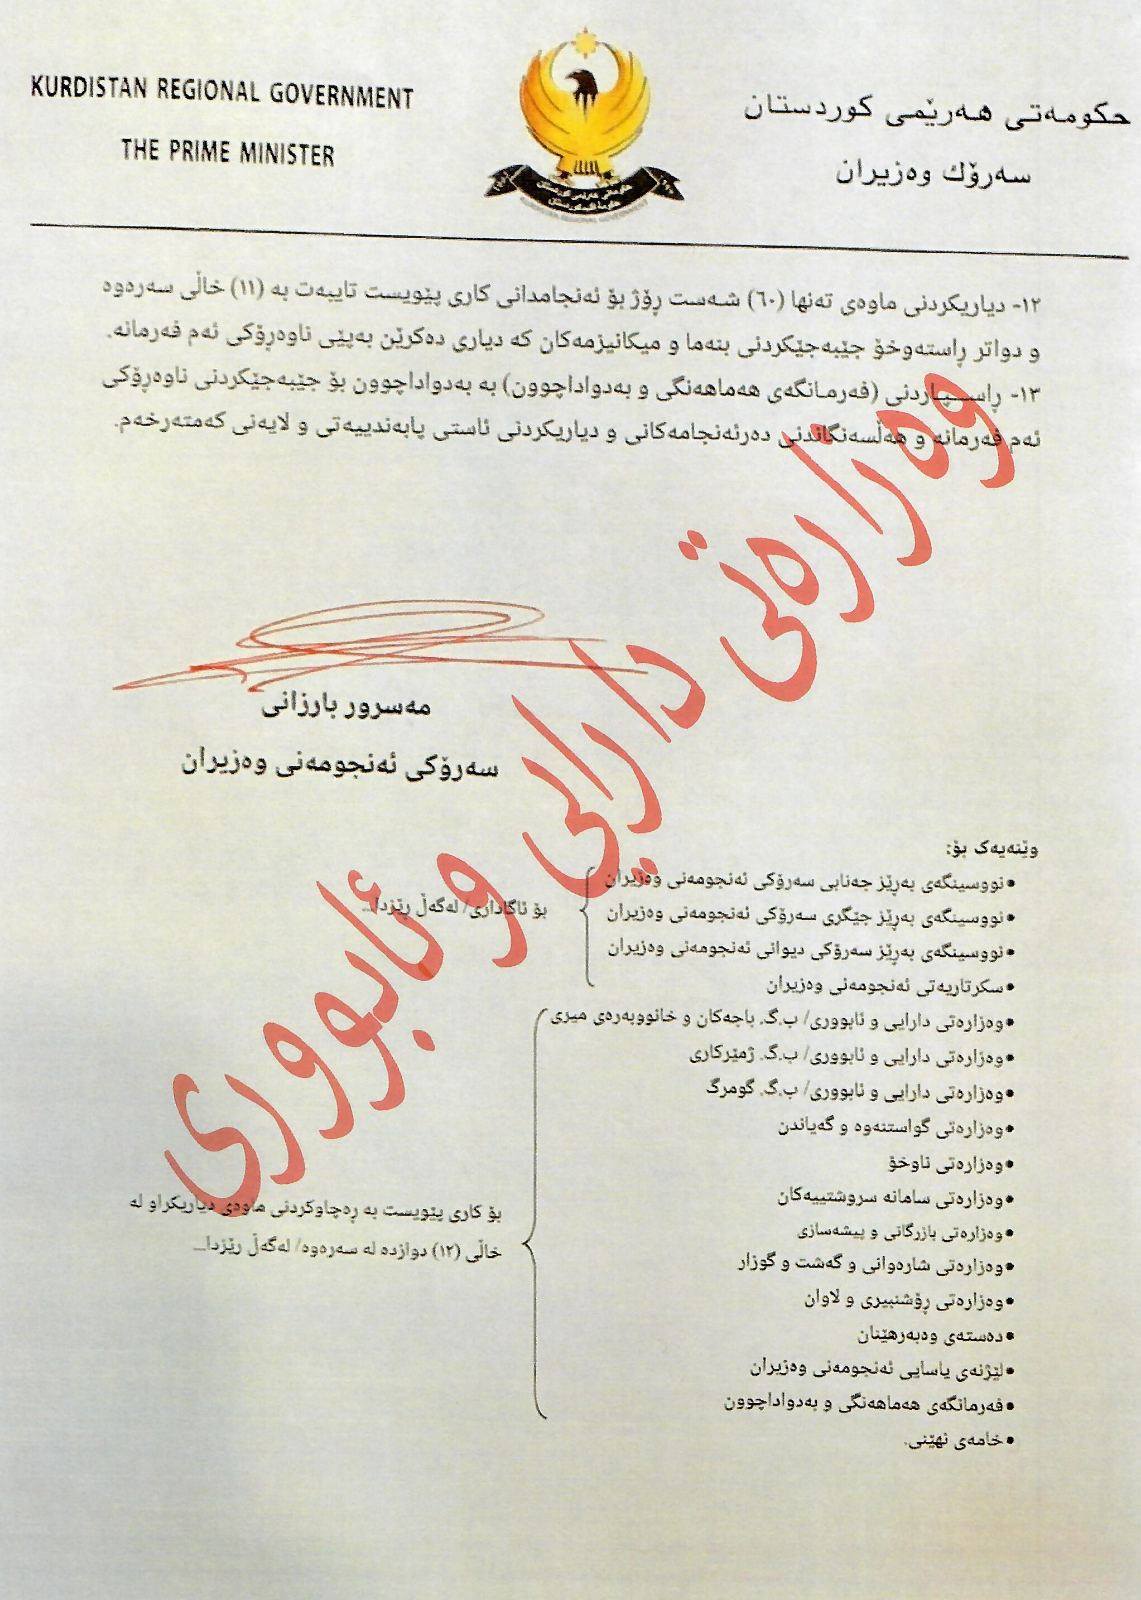 KURDISTAN REGIONAL GOVERNMENT
THE PRIME MINISTER
حکومەتی هەرێمی کوردستان
سەرۆك وەزیران
١٢- دیاریکردنی ماوەی تەنها (٦٠) شەست ڕۆژ بۆ ئەنجامدانی کاری پێویست تایبەت بە (١١) خاڵی سەرەوە
و دواتر ڕاستەوخۆ جێبەجێکردنی بنەما و میکانیزمەکان کە دیاری دەکرێن بەپێی ناوەڕۆکی ئەم فەرمانە.
١٣- ڕاسپاردنی (فەرمانگەی هەماهەنگی و بەدواداچوون) بە بەدواداچوون بۆ جێبەجێکردنی ناوەڕۆکی
ئەم فەرمانە و هەڵسەنگاندنی دەرئەنجامەکانی و دیاریکردنی ئاستی پابەندییەتی و لایەنی کەمتەرخەم.
مەسرور بارزانی
سەرۆکی ئەنجومەنی وەزیران
وەزارەتی دارایی و ئابووری
وێنەیەک بۆ:
•نووسینگەی بەڕێز جەنابی سەرۆکی ئەنجومەنی وەزیران
•نووسینگەی بەڕێز جێگری سەرۆکی ئەنجومەنی وەزیران
بۆ ئاگاداری/ لەگەڵ رێزدا...
•نووسینگەی بەڕێز سەرۆکی دیوانی ئەنجومەنی وەزیران
•سکرتاریەتی ئەنجومەنی وەزیران
•وەزارەتی دارایی و ئابووری/ ب.گ. باجەکان و خانووبەرەی میری
•وەزارەتی دارایی و ئابووری/ ب.گ. ژمێرکاری
•وەزارەتی دارایی و ئابووری/ ب.گ. گومرگ
•وەزارەتی گواستنەوە و گەیاندن
•وەزارەتی ناوخۆ
•وەزارەتی سامانە سروشتییەکان
•وەزارەتی بازرگانی و پیشەسازی
•وەزارەتی شارەوانی و گەشت و گوزار
•وەزارەتی ڕۆشنبیری و لاوان
•دەستەی وەبەرهێنان
•لێژنەی یاسایی ئەنجومەنی وەزیران
•فەرمانگەی هەماهەنگی و بەدواداچوون
بۆ کاری پێویست بە ڕەچاوکردنی ماوەی دیاریکراو لە
خاڵی (١٢) دوازدە لە سەرەوە/ لەگەڵ رێزدا...
•خامەی نهێنی.